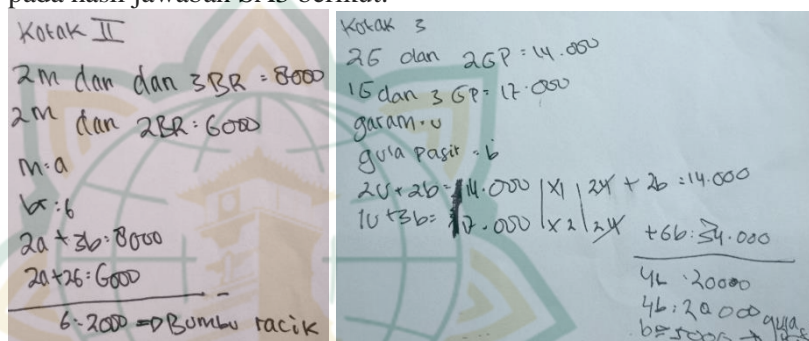 pada hasil jawaban SAS berikut.
Kotak II
2m dan dan 3BR = 8000
2m dan 2BR = 6000
m = a
br = b
2a + 3b = 8000
2a + 2b = 6000
b = 2000 => Bumbu racik
Kotak 3
2G dan 2GP = 14.000
1G dan 3GP = 17.000
garam = u
gula pasir = b
2u + 2b = 14.000 | x1 | 2u + 2b = 14.000
1u + 3b = 17.000 | x2 | 2u + 6b = 34.000
4b = 20000
4b = 20000
b = 5000 → gula